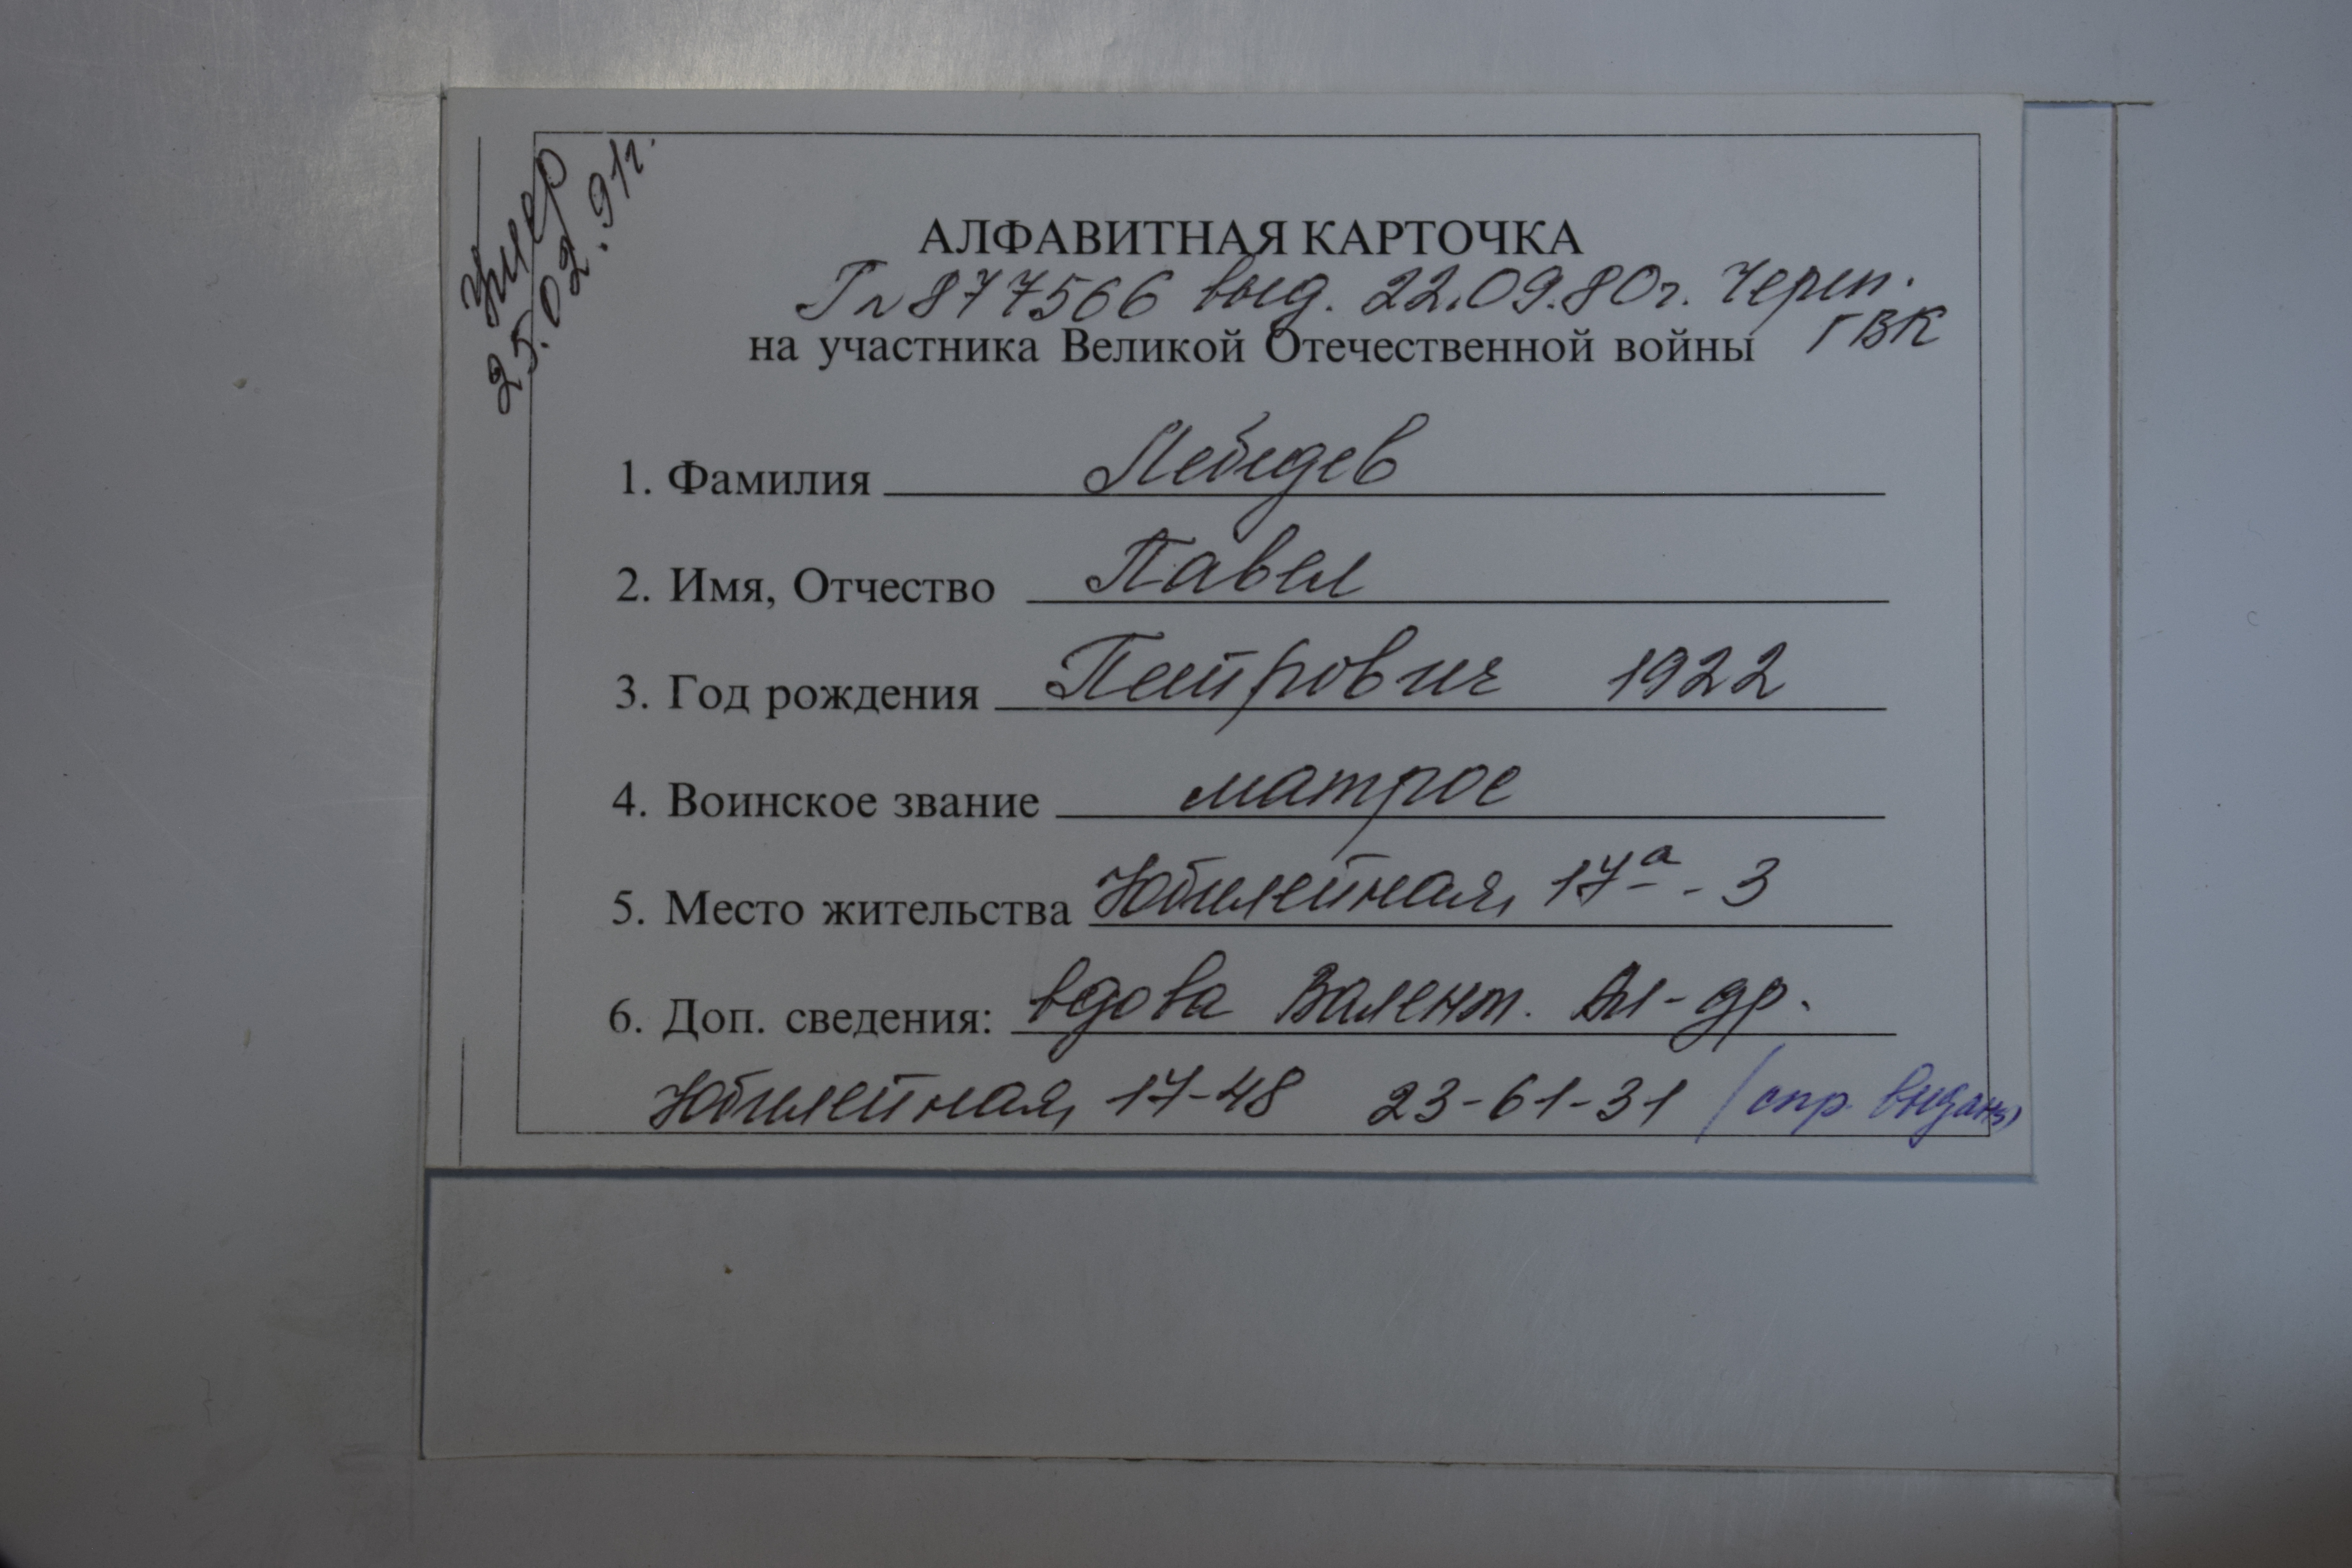 умер
25.02.91г.
АЛФАВИТНАЯ КАРТОЧКА
Гл 877566 выд. 22.09.80г. Череп.
ГВК
на участника Великой Отечественной войны
1. Фамилия Лебедев
2. Имя, Отчество Павел
3. Год рождения Петрович 1922
4. Воинское звание матрос
5. Место жительства Юбилейная, 17а - 3
6. Доп. сведения: вдова Валент. Ал-др.
Юбилейная, 17-48 23-61-31 (спр. выдана)